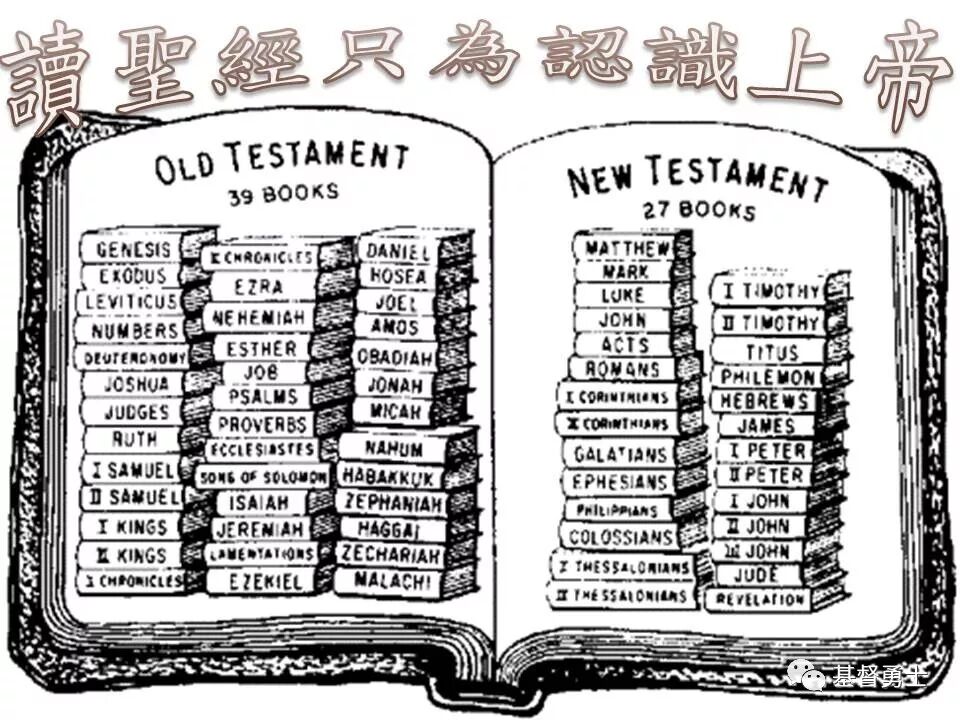 讀聖經只為認識上帝
OLD TESTAMENT
39 BOOKS
GENESIS
EXODUS
LEVITICUS
NUMBERS
DEUTERONOMY
JOSHUA
JUDGES
RUTH
I SAMUEL
II SAMUEL
I KINGS
II KINGS
I CHRONICLES
II CHRONICLES
EZRA
NEHEMIAH
ESTHER
JOB
PSALMS
PROVERBS
ECCLESIASTES
SONG OF SOLOMON
ISAIAH
JEREMIAH
LAMENTATIONS
EZEKIEL
DANIEL
HOSEA
JOEL
AMOS
OBADIAH
JONAH
MICAH
NAHUM
HABAKKUK
ZEPHANIAH
HAGGAI
ZECHARIAH
MALACHI
NEW TESTAMENT
27 BOOKS
MATTHEW
MARK
LUKE
JOHN
ACTS
ROMANS
I CORINTHIANS
II CORINTHIANS
GALATIANS
EPHESIANS
PHILIPPIANS
COLOSSIANS
I THESSALONIANS
II THESSALONIANS
I TIMOTHY
II TIMOTHY
TITUS
PHILEMON
HEBREWS
JAMES
I PETER
II PETER
I JOHN
II JOHN
III JOHN
JUDE
REVELATION
基督勇士